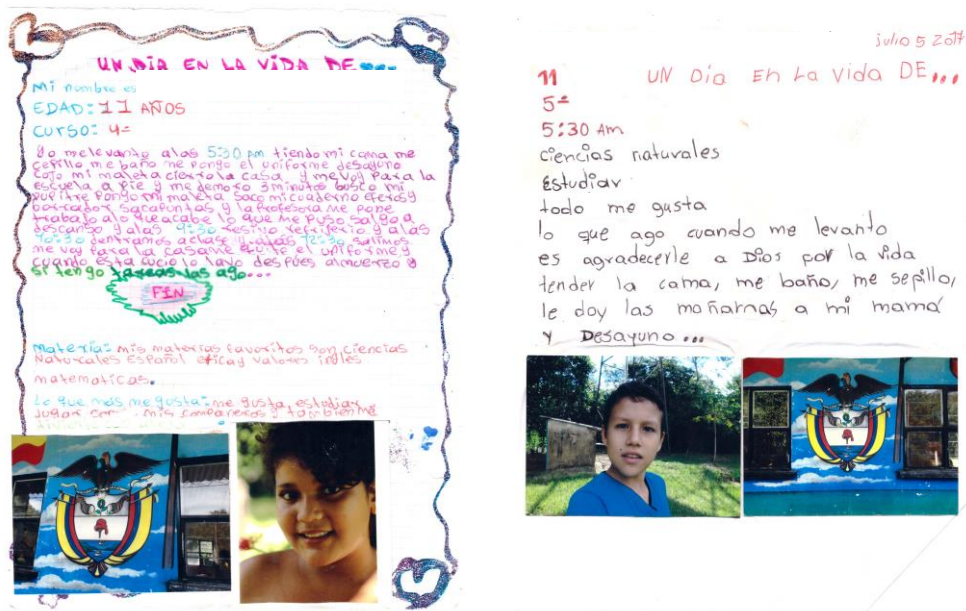 UN DIA EN LA VIDA DE...
Mi nombre es
EDAD: 11 AÑOS
CURSO: 4º
Yo me levanto alas 5:30 pm tiendo mi cama me
cepillo me baño me pongo el uniforme desayuno
cojo mi maleta cierro la casa y me voy para la
escuela a pie y me demoro 3 minutos busco mi
pupitre pongo mi maleta saco mi cuaderno eferos y
borrador sacapuntas y la profesora me pone
trabajo alo que acabe lo que me puso salgo a
descanso y alas 9:30 resivo refrijerio y alas
10:30 dentramos a clase y alas 12:30 salimos
me voy para la casa me quito el uniforme y
cuando esta sucio lo lavo despues almuerzo y
si tengo tareas las ago...
FIN
Materia: mis materias favoritos son ciencias
Naturales Español etica y valores ingles
matematicas.
Lo que más me gusta: me gusta, estudiar
Jugar con mis compañeros y también me
julio 5 2017
11 UN Dia En La Vida DE...
5º
5:30 Am
ciencias naturales
Estudiar
todo me gusta
lo que ago cuando me levanto
es agradecerle a Dios por la vida
tender la cama, me baño, me sepillo,
le doy las mañarnas a mi mamá
y Desayuno...